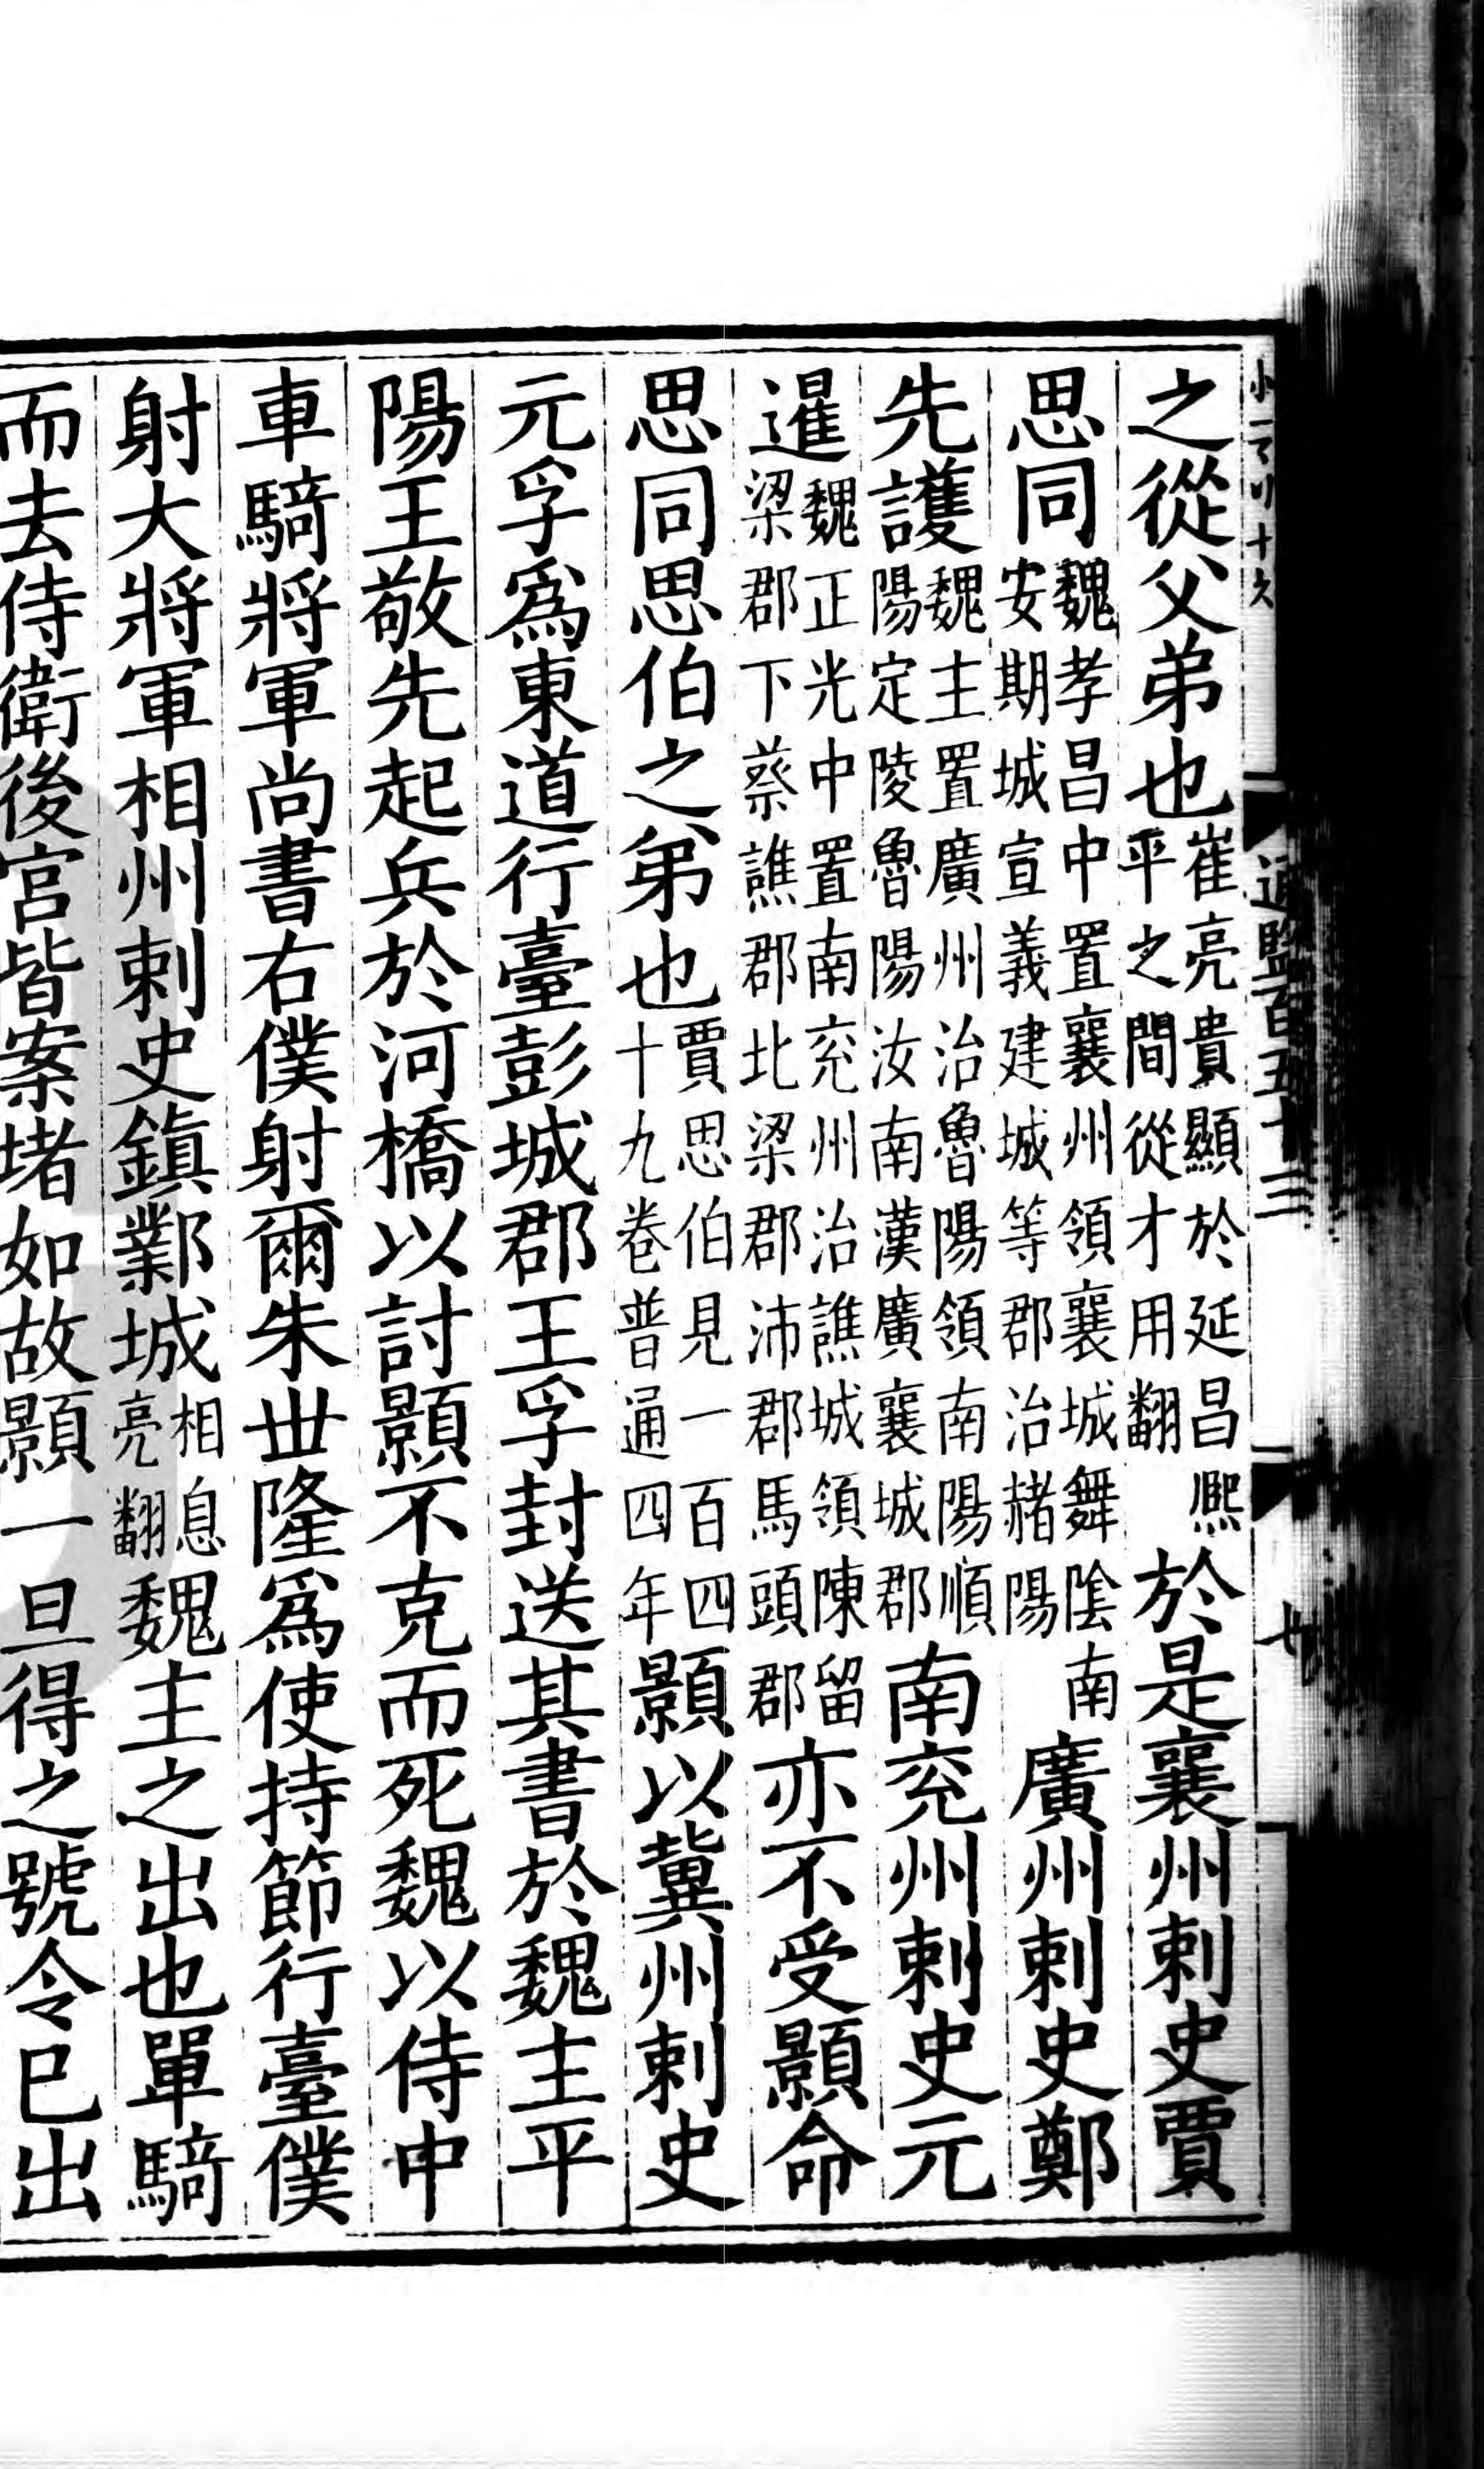 通鑑百五十三
之從父弟也崔亮貴顯於延昌熙平之間從才用翻於是襄州刺史賈
思同魏孝昌中置襄州領襄城舞陰南安期城宣義建城等郡治赭陽廣州刺史鄭
先護魏主置廣州治魯陽領南陽順陽定陵魯陽汝南漢廣襄城郡南兖州刺史元
暹魏正光中置南兖州治譙城領陳留梁郡下蔡譙郡北梁郡沛郡馬頭郡亦不受顥命
思同思伯之弟也賈思伯見一百四十九卷普通四年顥以冀州刺史
元孚爲東道行臺彭城郡王孚封送其書於魏主平
陽王敬先起兵於河橋以討顥不克而死魏以侍中
車騎將軍尚書右僕射爾朱世隆爲使持節行臺僕
射大將軍相州刺史鎮鄴城相息亮翻魏主之出也單騎
而去侍衛後宮皆案堵如故顥一旦得之號令已出